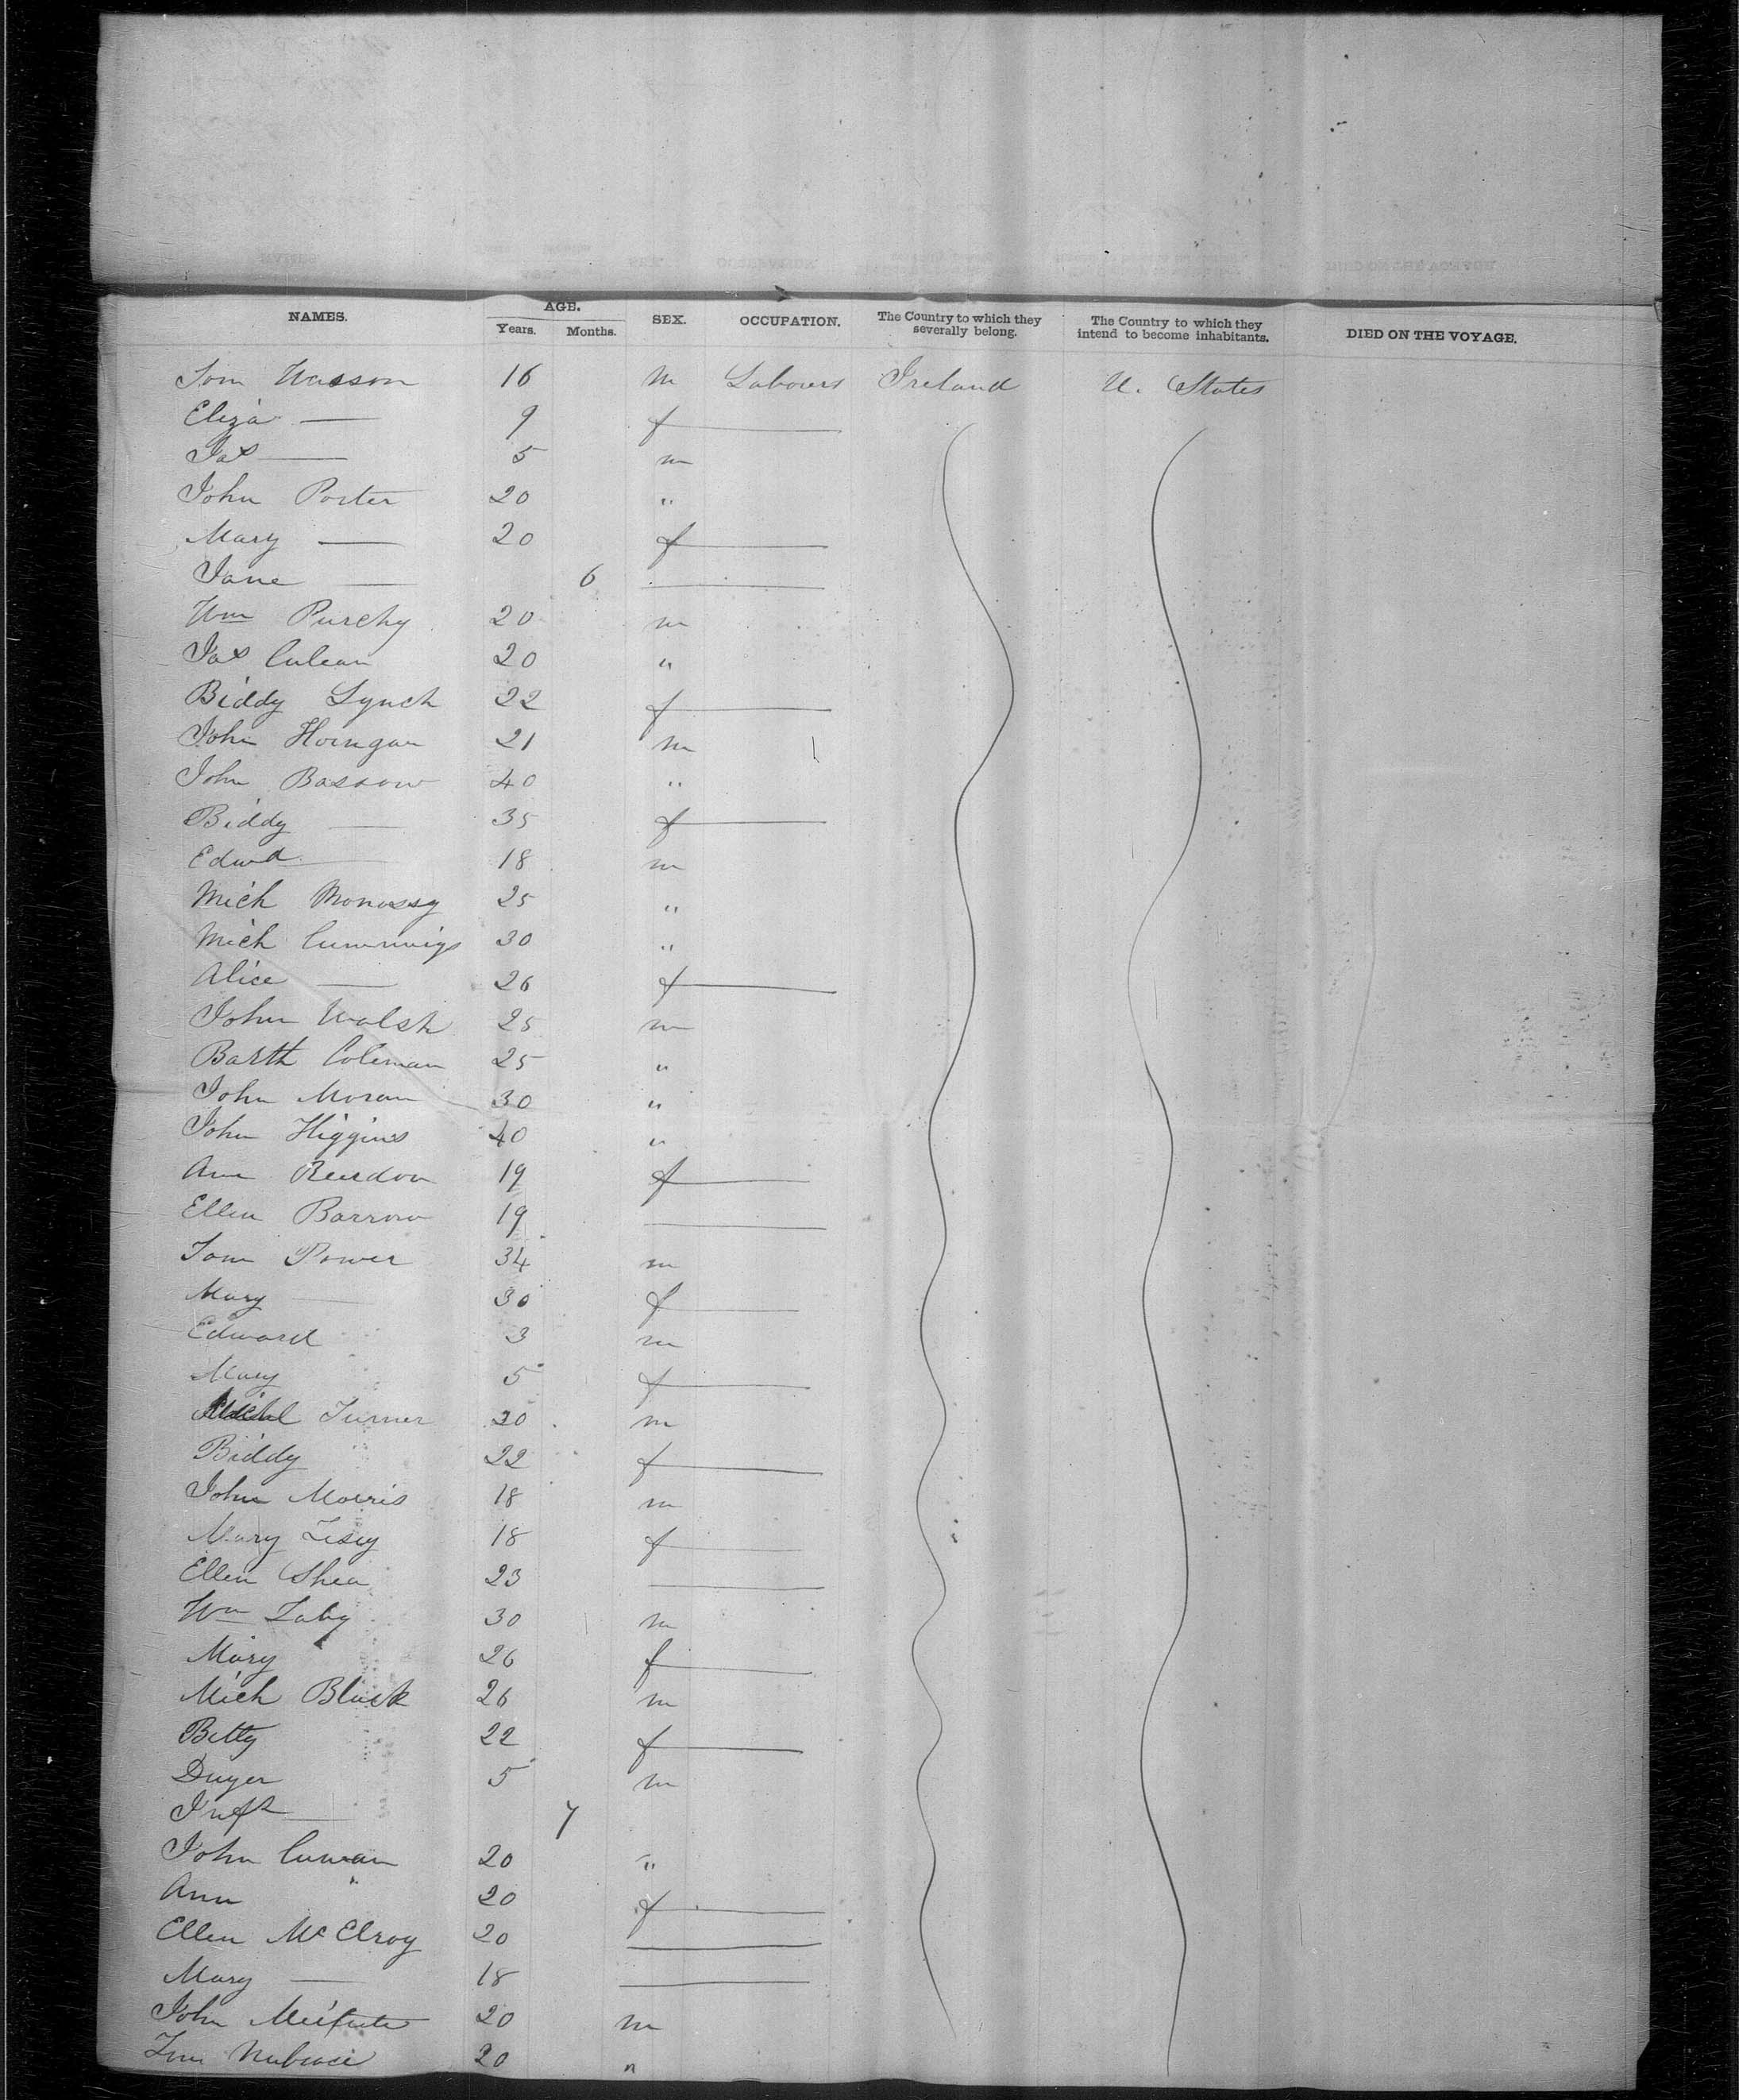 NAMES. AGE. Years. Months. SEX. OCCUPATION. The Country to which they severally belong. The Country to which they intend to become inhabitants. DIED ON THE VOYAGE.
Tom Wasson 16 m Labourers Ireland U. States
Eliza — 9 f —
Jas — 5 m
John Porter 20 "
Mary — 20 f —
Jane — 6 —
Wm 20 m
Jas 20 "
Biddy Lynch 22 f —
John Horngan 21 m
John Barrow 40 "
Biddy — 35 f —
Edwd — 18 m
Mich 25 "
Mich Cummings 30 "
Alice — 26 f —
John Walsh 25 m
Barth Coleman 25 "
John Moran 30 "
John Higgins 40 "
Ann 19 f —
Ellen Barrow 19 —
Tom Power 34 m
Mary — 30 f —
Edward 3 m
Mary 5 f —
Michl Turner 30 m
Biddy 22 f —
John Morris 18 m
Mary 18 f —
Ellen Shea 23 —
Wm 30 m
Mary 26 f —
Mich Black 26 m
Betty 22 f —
Dwyer 5 m
Inft — 7
John 20 "
Ann " 20 f —
Ellen McElroy 20 —
Mary — 18 —
John 20 m
20 "